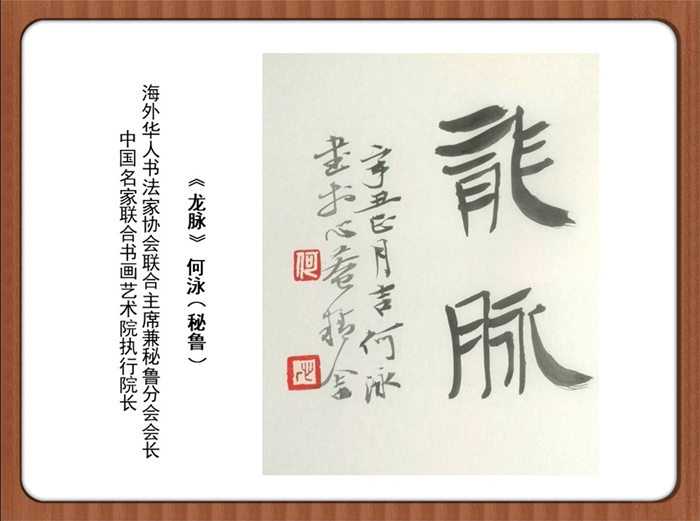 龍脉
辛丑正月吉何泳
书于心菴精舍
何
《龙脉》 何泳（秘鲁）
海外华人书法家协会联合主席兼秘鲁分会会长
中国名家联合书画艺术院执行院长